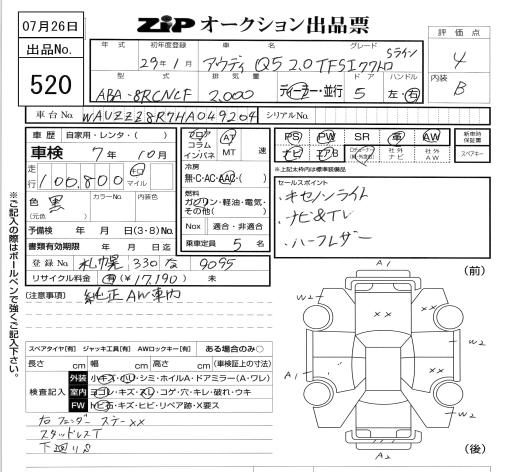 07月26日
出品No.
520
ZIP オークション出品票
評価点
4
内装
B
年式 初年度登録 車名 グレード
29年1月 アウディ Q5 2.0 TFSIクワトロ Sライン
型式 排気量 ドア ハンドル
ABA-8RCNCF 2,000 ディーラー・並行 5 左・右
車台No. WAUZZZ8R7HA049204 シリアルNo.
車歴 自家用・レンタ・( )
車検 7年10月
走行 100,800 キロ マイル
色 黒 (元色) カラーNo. 内装色
予備検 年 月 日(3・8)No.
書類有効期限 年 月 日迄
登録No. 札幌 330 な 9095
リサイクル料金 有(¥17,190) 未
フロア コラム インパネ
AT MT 速
冷房
無・C・AC・AAC・( )
燃料
ガソリン・軽油・電気・その他( )
Nox 適合・非適合
乗車定員 5 名
PS PW SR 革 AW
ナビ エアB 社外ナビ 社外AW
新車時保証書
スペアキー
※上記太枠内は標準装備品
セールスポイント
・キセノンライト
・ナビ&TV
・ハーフレザー
(注意事項) 純正AW車内
※ご記入の際はボールペンで強くご記入下さい。
スペアタイヤ[有] ジャッキ工具[有] AWロックキー[有] ある場合のみ○
長さ cm 幅 cm 高さ cm (車検証上の寸法)
検査記入
外装 小キズ・小凹・シミ・ホイルA・ドアミラー(A・ワレ)
室内 ヨゴレ・キズ・スレ・コゲ・穴・キレ・破れ・ウキ
FW トビ石・キズ・ヒビ・リペア跡・X要ス
右フェンダーステーXX
スタッドレスT
下廻りS
(前)
A1
W2
XX
XX
W2
A1
A1
W2
A2
(後)